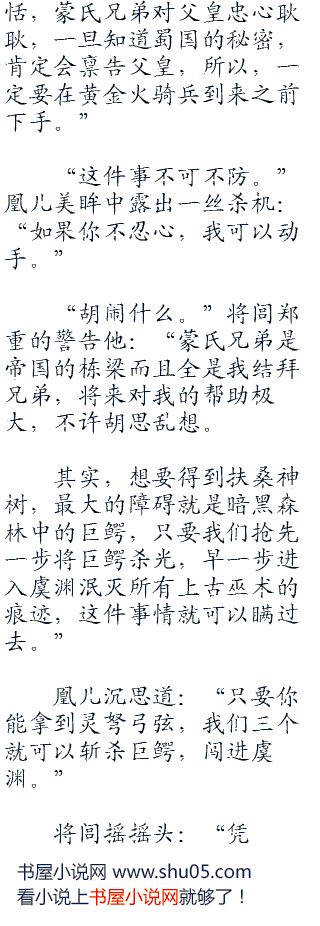 恬，蒙氏兄弟对父皇忠心耿
耿，一旦知道蜀国的秘密，
肯定会禀告父皇，所以，一
定要在黄金火骑兵到来之前
下手。”
“这件事不可不防。”
凰儿美眸中露出一丝杀机：
“如果你不忍心，我可以动
手。”
“胡闹什么。”将闾郑
重的警告他：“蒙氏兄弟是
帝国的栋梁而且全是我结拜
兄弟，将来对我的帮助极
大，不许胡思乱想。
其实，想要得到扶桑神
树，最大的障碍就是暗黑森
林中的巨鳄，只要我们抢先
一步将巨鳄杀光，早一步进
入虞渊泯灭所有上古巫术的
痕迹，这件事情就可以瞒过
去。”
凰儿沉思道：“只要你
能拿到灵弩弓弦，我们三个
就可以斩杀巨鳄，闯进虞
渊。”
将闾摇摇头：“凭
书屋小说网 www.shu05.com
看小说上书屋小说网就够了！